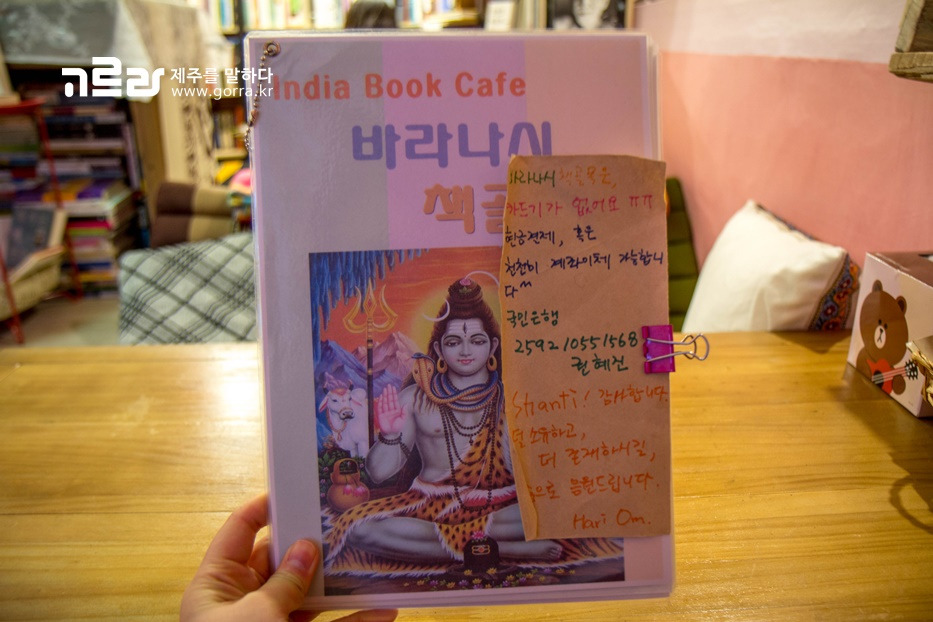 고르라 제주를 말하다
www.gorra.kr
India Book Cafe
바라나시
책골
바라나시 책골목은,
카드기가 없어요 ㅠㅠ
현금결제, 혹은
천천히 계좌이체 가능합니
다^^
국민은행
25921055 1568
권혜진
Shanti! 감사합니다.
덜 소유하고,
더 존재하시길,
으로 응원드립니다.
Hari Om.